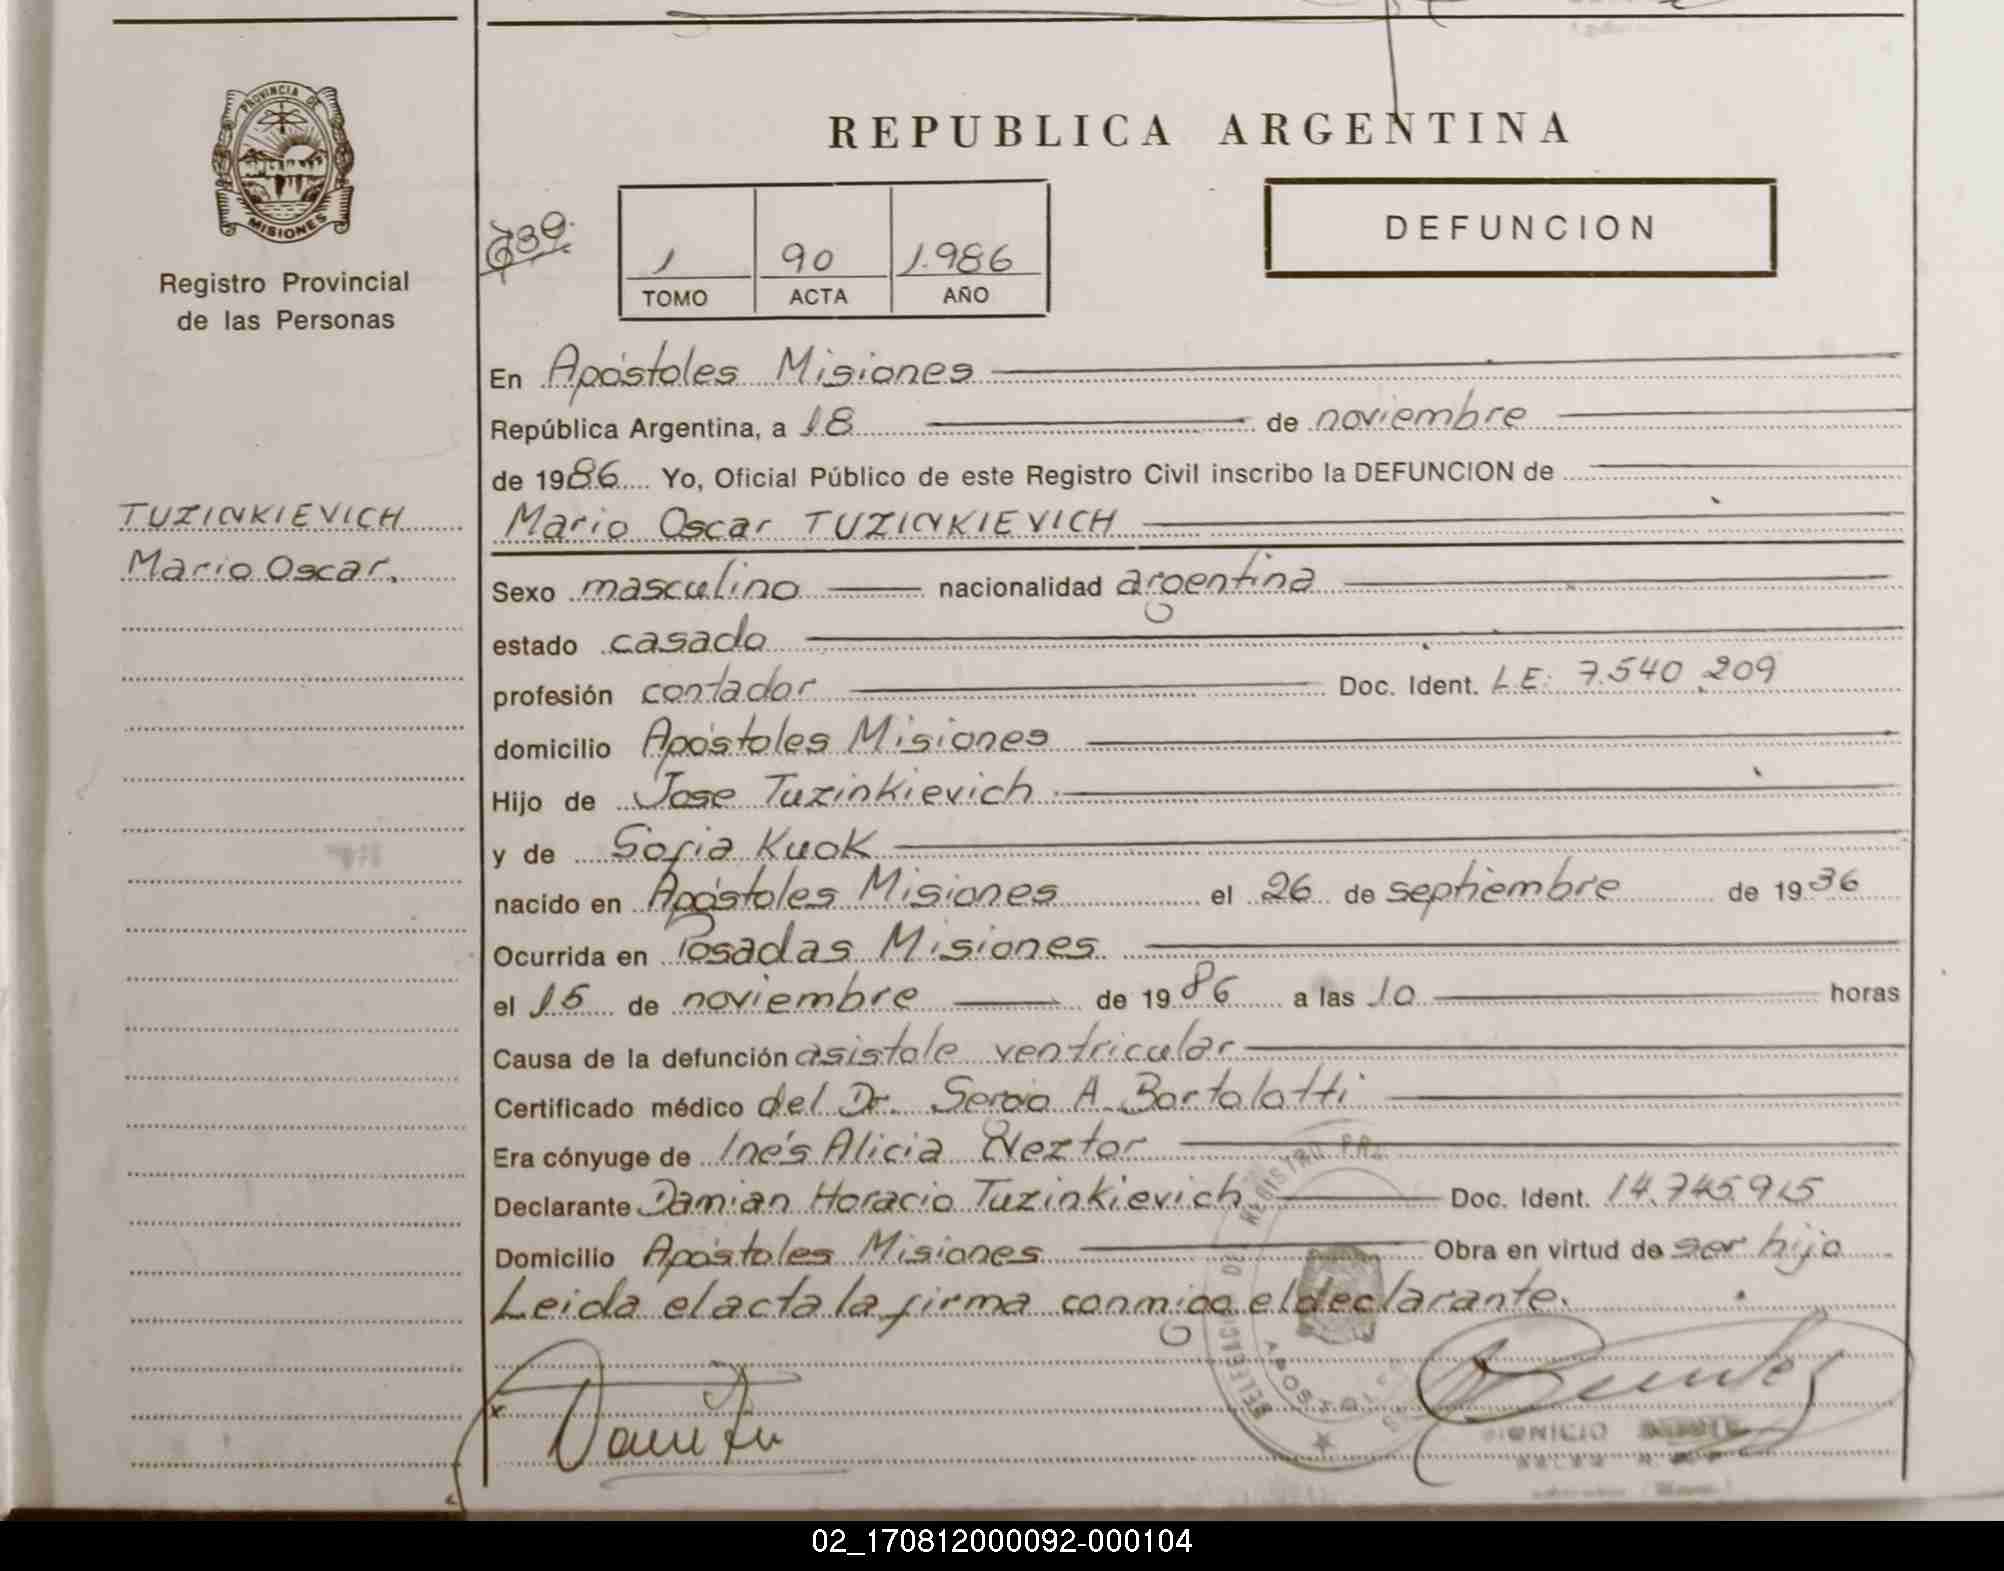 PROVINCIA DE
MISIONES
Registro Provincial
de las Personas
TUZINKIEVICH
Mario Oscar.
REPUBLICA ARGENTINA
739
1 90 1.986
TOMO ACTA AÑO
DEFUNCION
En Apóstoles Misiones
República Argentina, a 18 de noviembre
de 1986 Yo, Oficial Público de este Registro Civil inscribo la DEFUNCION de
Mario Oscar TUZINKIEVICH
Sexo masculino nacionalidad argentina
estado casado
profesión contador Doc. Ident. L.E: 7.540.209
domicilio Apóstoles Misiones
Hijo de Jose Tuzinkievich
y de Sofia Kuok
nacido en Apóstoles Misiones el 26 de septiembre de 1936
Ocurrida en Posadas Misiones
el 15 de noviembre de 1986 a las 10 horas
Causa de la defunción asistole ventricular
Certificado médico del Dr. Sergio A. Bortolotti
Era cónyuge de Inés Alicia Neztor
Declarante Damian Horacio Tuzinkievich Doc. Ident. 14.745.915
Domicilio Apóstoles Misiones Obra en virtud de ser hijo
Leida el acta la firma conmigo el declarante.
02_170812000092-000104